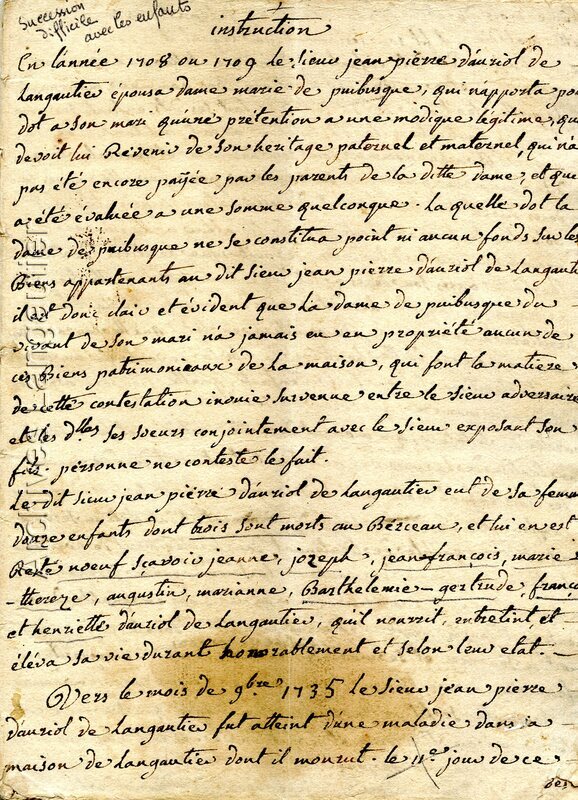 Succession
difficile
avec les enfants
1
instruction
En l'année 1708 ou 1709 le sieur jean pierre d'auriol de
Langautier épousa dame marie de puibusque, qui n'apporta po
dot a son mari qu'une prétention a une modique légitime, qu
devoit lui Revenir de son heritage paternel et maternel, qui n'a
pas été encore paÿée par les parents de la ditte dame, et que
a été évaluée a une somme quelconque. La quelle dot la
dame de puibusque ne se constitua point ni aucun fonds sur les
Biens appartenants au dit sieur jean pierre d'auriol de Langauti
il est donc clair et évident que La dame de puibusque du
vivant de son mari n'a jamais eu en propriété aucun de
ces Biens patrimoniaux de la maison, qui font la matiere
de cette contestation inouie survenue entre le sieur adversaire
et les d.lles ses soeurs conjointement avec le sieur exposant son
fils. personne ne conteste le fait.
Le dit sieur jean pierre d'auriol de Langautier eut de sa femm
douze enfants dont trois sont morts au Bérceau, et lui en est
Resté noeuf sçavoir jeanne, jozeph, jean françois, marie
-thereze, augustin, marianne, Barthelemie-gertrude, franço
et henriette d'auriol de Langautier, qu'il nourrit, entretint, et
éléva sa vie durant honorablement et selon leur etat.-
Vers le mois de 9.bre 1735 le sieur jean pierre
d'auriol de Langautier fut atteint d'une maladie dans sa
maison de Langautier dont il mourut. le 11.e jour de ce
des